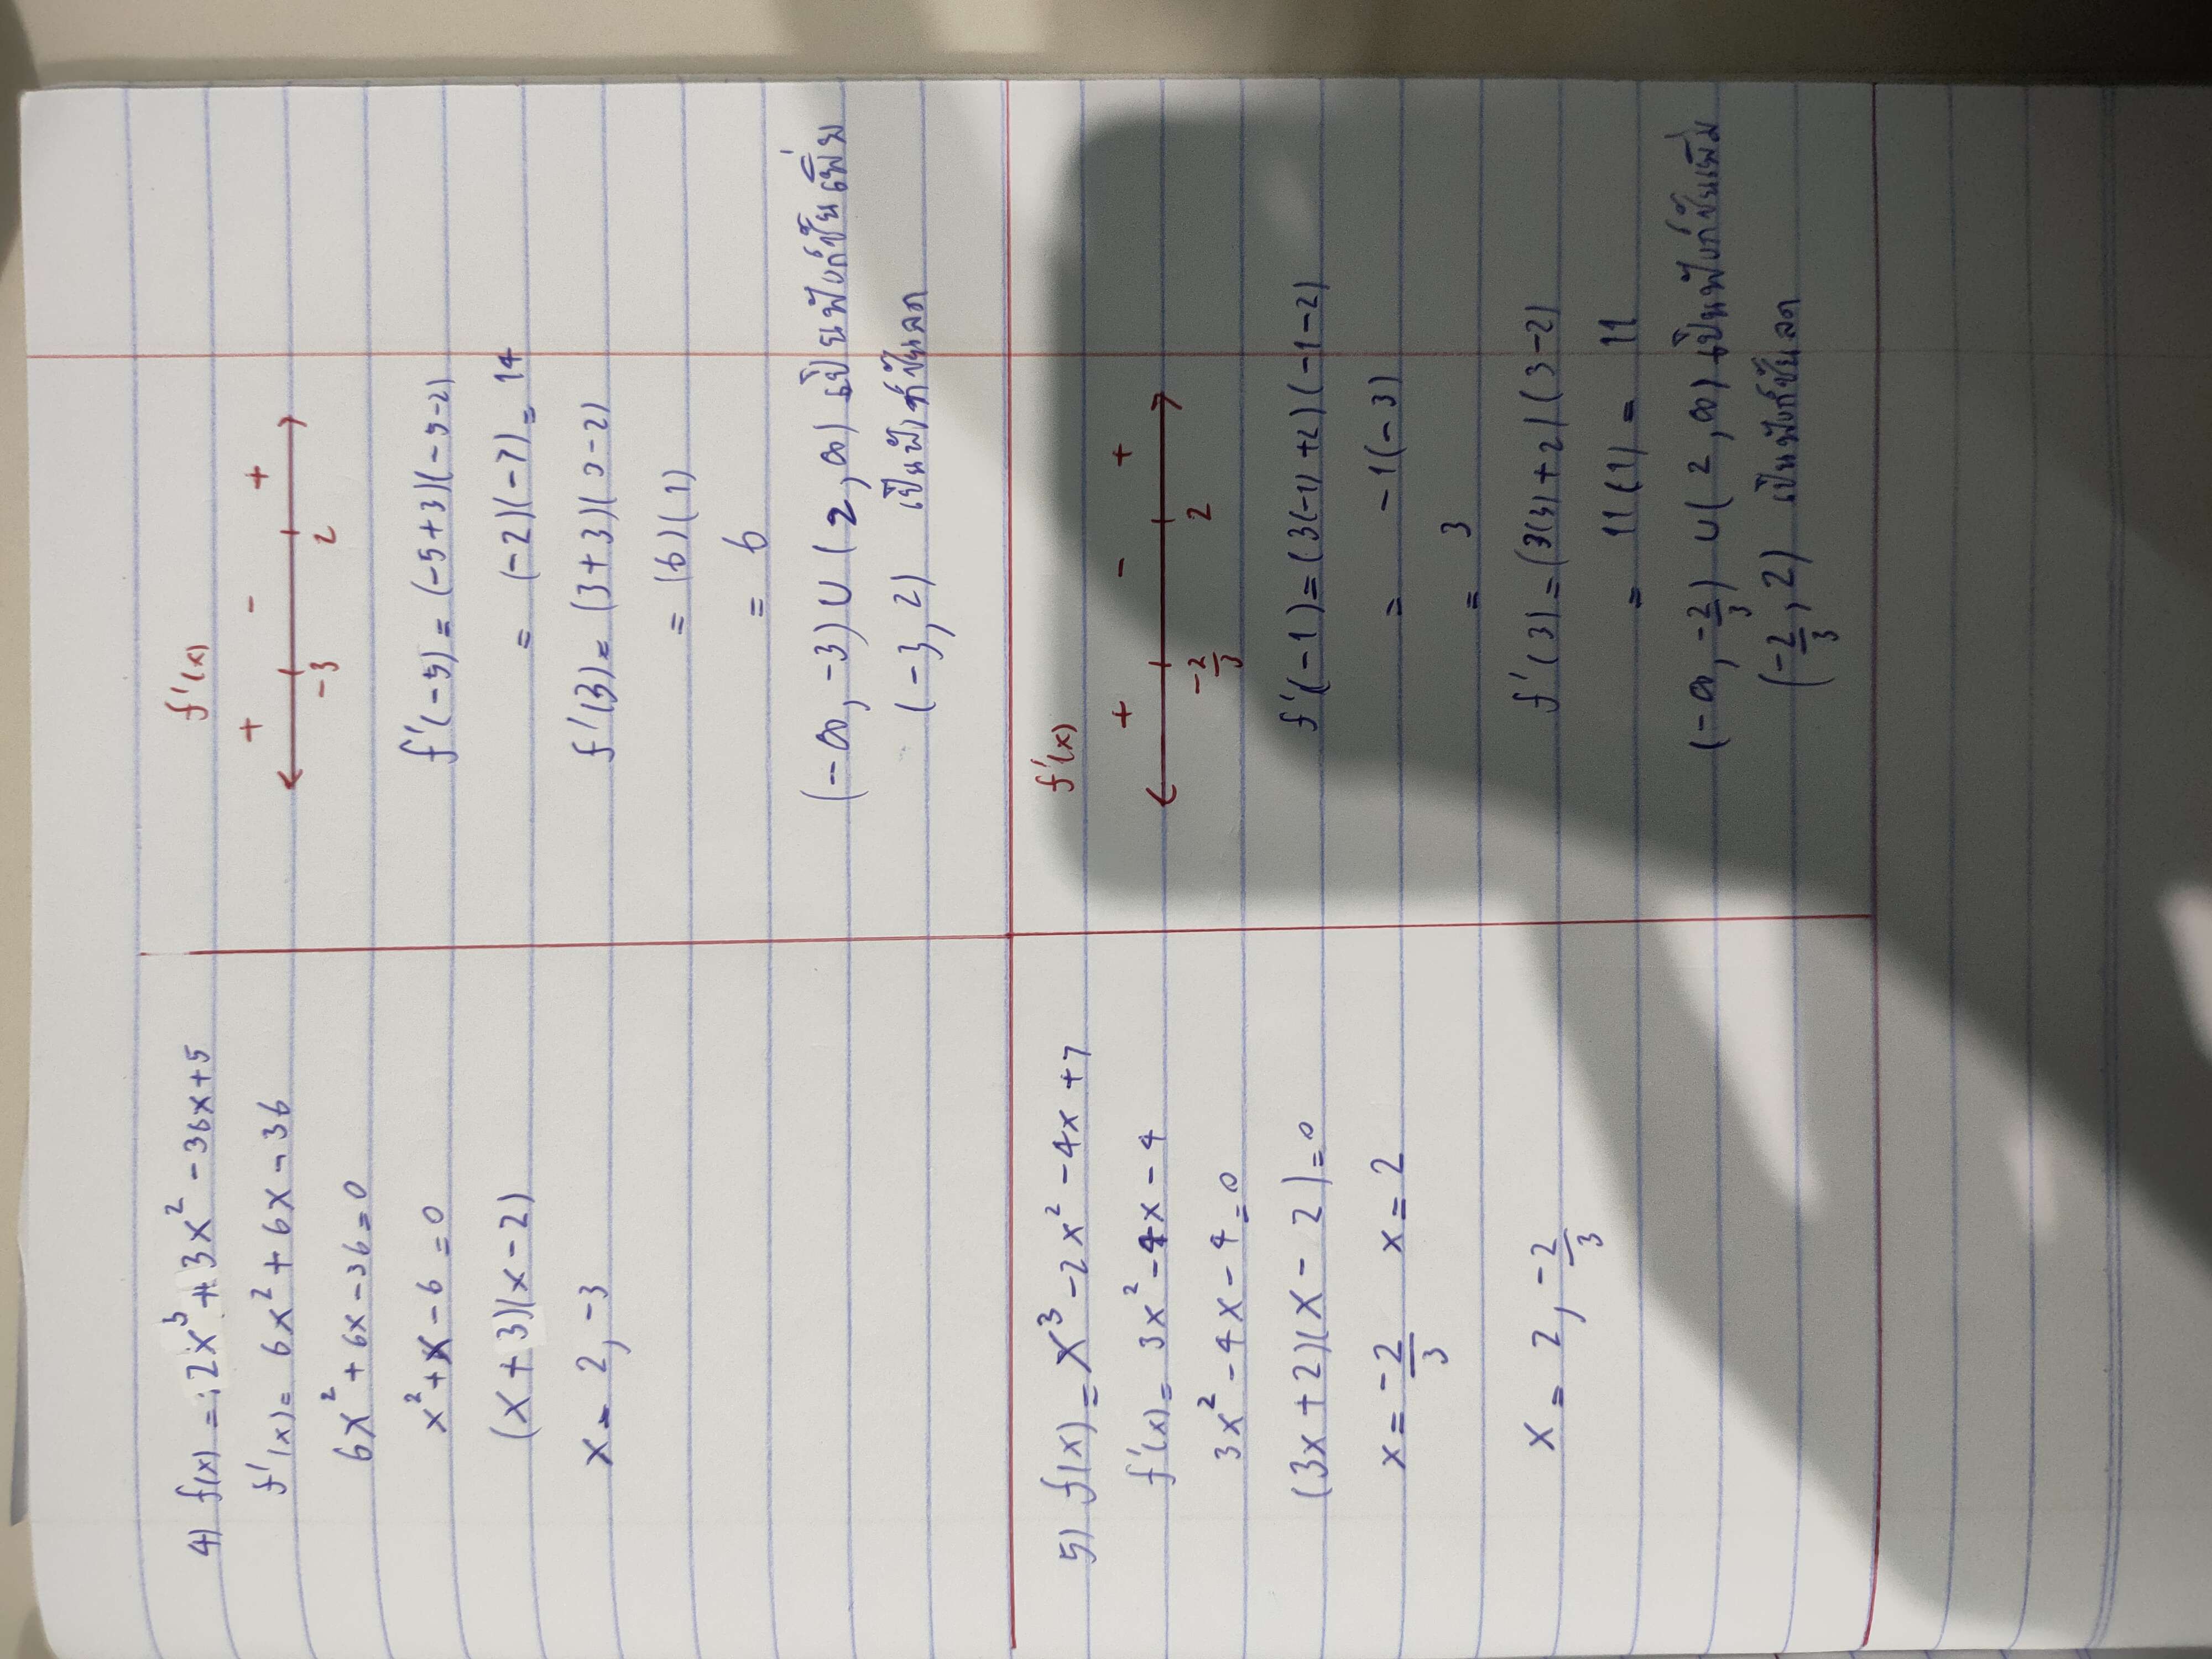 4) f(x) = 2x³ + 3x² - 36x + 5
f'(x) = 6x² + 6x - 36
6x² + 6x - 36 = 0
x² + x - 6 = 0
(x + 3)(x - 2)
x = 2, -3
f'(x)
+ - +
-3 2
f'(-5) = (-5+3)(-5-2)
= (-2)(-7) = 14
f'(3) = (3+3)(3-2)
= (6)(1)
= 6
(-∞, -3) ∪ (2, ∞) เป็นฟังก์ชันเพิ่ม
(-3, 2) เป็นฟังก์ชันลด
5) f(x) = x³ - 2x² - 4x + 7
f'(x) = 3x² - 4x - 4
3x² - 4x - 4 = 0
(3x + 2)(x - 2) = 0
x = -2/3 x = 2
x = 2, -2/3
f'(x)
+ - +
-2/3 2
f'(-1) = (3(-1)+2)(-1-2)
= -1(-3)
= 3
f'(3) = (3(3)+2)(3-2)
= 11(1) = 11
(-∞, -2/3) ∪ (2, ∞) เป็นฟังก์ชันเพิ่ม
(-2/3, 2) เป็นฟังก์ชันลด